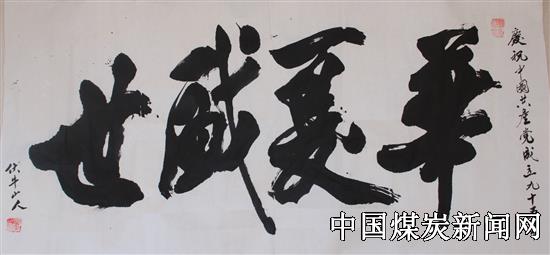 慶祝中國共產党成立九十
華夏盛世
伏牛山人
中国煤炭新闻网